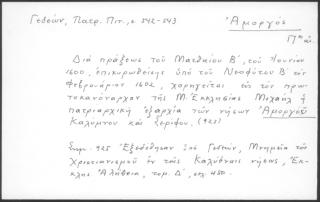 Γεδεών, Πατρ. Πιν., σ. 542-543
Ἀμοργός
Διὰ πράξεως τοῦ Ματθαίου Β´, τοῦ Ἰουνίου
1600, ἐπικυρωθείσης ὑπὸ τοῦ Νεοφύτου Β´ τὸν
Φεβρουάριον 1602, χορηγεῖται εἰς τὸν πρω-
τοκανονάρχην τῆς Μ. Ἐκκλησίας Μιχαὴλ ἡ
πατριαρχικὴ ἐξαρχία τῶν νήσων Ἀμοργοῦ
Καλύμνου καὶ Σερίφου. (925)
925 Ἐξεδόθησαν ὑπὸ Γεδεών, Μνημεῖα τοῦ
Χριστιανισμοῦ ἐν ταῖς νήσοις, Ἐκ-
κλησ. Ἀλήθεια, τομ. Δ´, σελ. 450.